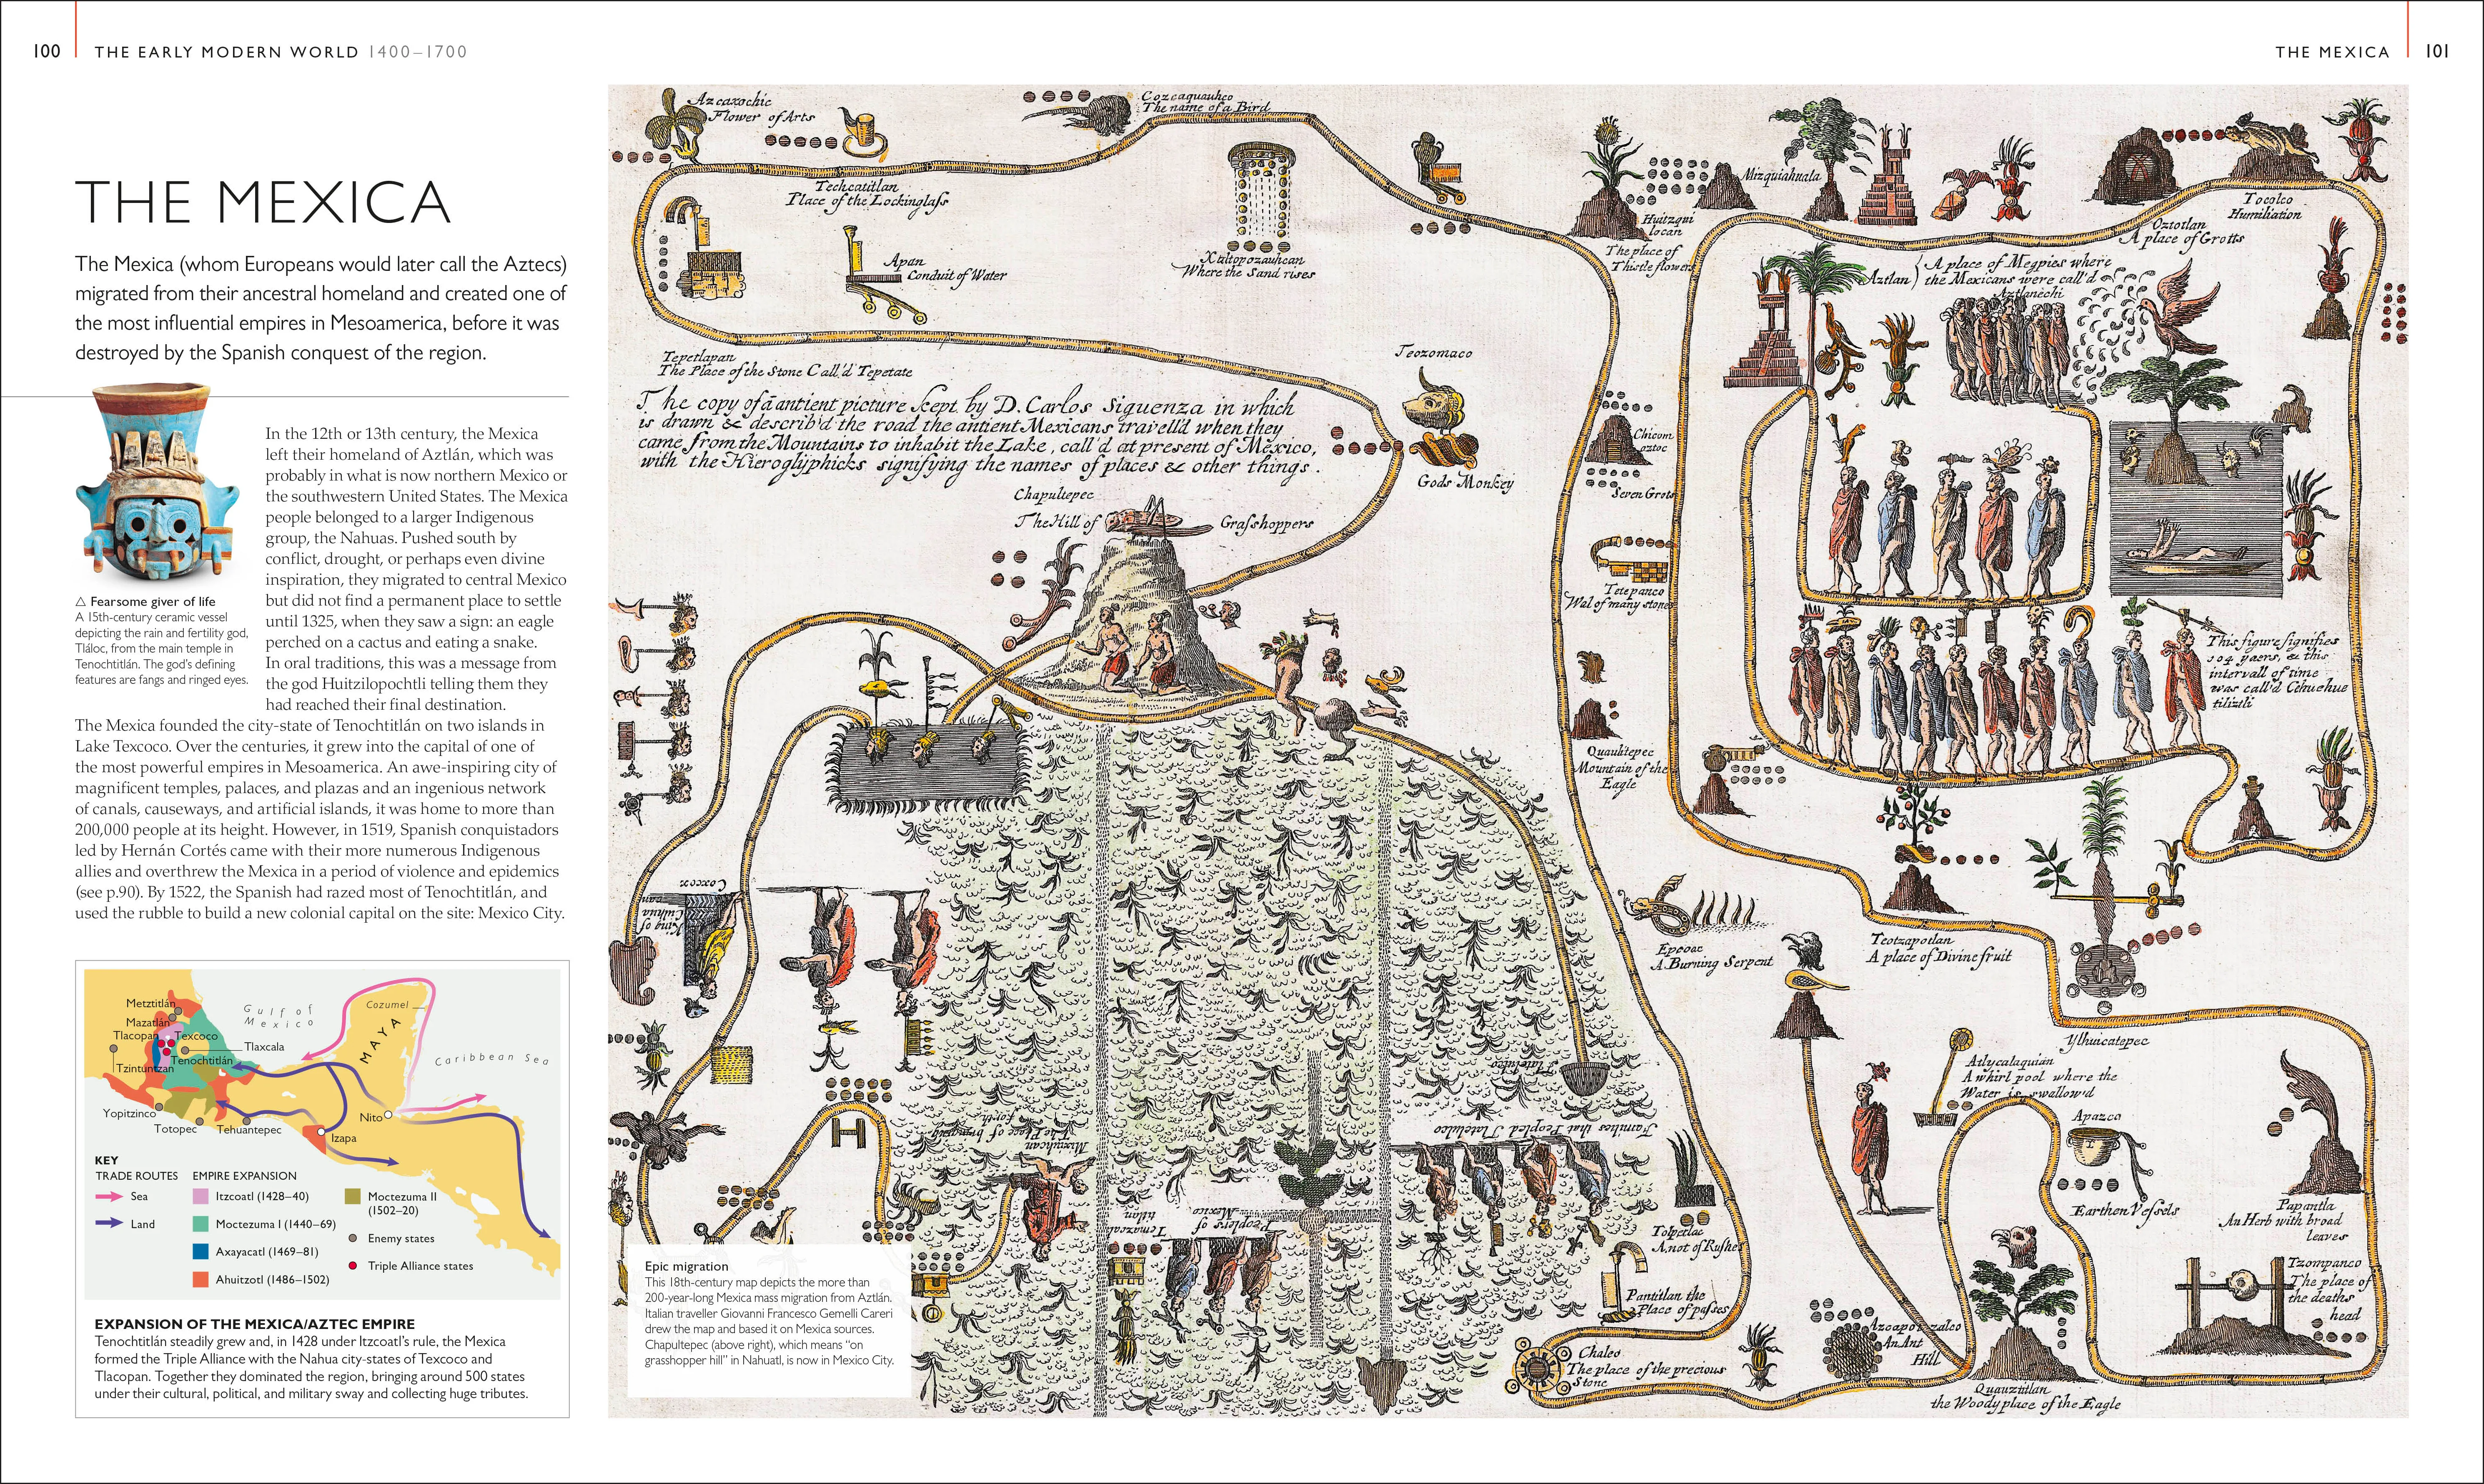 100
THE EARLY MODERN WORLD 1400–1700
THE MEXICA
101
THE MEXICA
The Mexica (whom Europeans would later call the Aztecs)
migrated from their ancestral homeland and created one of
the most influential empires in Mesoamerica, before it was
destroyed by the Spanish conquest of the region.
△ Fearsome giver of life
A 15th-century ceramic vessel
depicting the rain and fertility god,
Tláloc, from the main temple in
Tenochtitlán. The god's defining
features are fangs and ringed eyes.
In the 12th or 13th century, the Mexica
left their homeland of Aztlán, which was
probably in what is now northern Mexico or
the southwestern United States. The Mexica
people belonged to a larger Indigenous
group, the Nahuas. Pushed south by
conflict, drought, or perhaps even divine
inspiration, they migrated to central Mexico
but did not find a permanent place to settle
until 1325, when they saw a sign: an eagle
perched on a cactus and eating a snake.
In oral traditions, this was a message from
the god Huitzilopochtli telling them they
had reached their final destination.
The Mexica founded the city-state of Tenochtitlán on two islands in
Lake Texcoco. Over the centuries, it grew into the capital of one of
the most powerful empires in Mesoamerica. An awe-inspiring city of
magnificent temples, palaces, and plazas and an ingenious network
of canals, causeways, and artificial islands, it was home to more than
200,000 people at its height. However, in 1519, Spanish conquistadors
led by Hernán Cortés came with their more numerous Indigenous
allies and overthrew the Mexica in a period of violence and epidemics
(see p.90). By 1522, the Spanish had razed most of Tenochtitlán, and
used the rubble to build a new colonial capital on the site: Mexico City.
Metztitlán
Mazatlán
Tlacopan
Texcoco
Tlaxcala
Tenochtitlán
Tzintúntzan
Yopitzinco
Totopec
Tehuantepec
Izapa
Nito
Gulf of
Mexico
Cozumel
MAYA
Caribbean Sea
KEY
TRADE ROUTES
Sea
Land
EMPIRE EXPANSION
Itzcoatl (1428–40)
Moctezuma I (1440–69)
Axayacatl (1469–81)
Ahuitzotl (1486–1502)
Moctezuma II
(1502–20)
Enemy states
Triple Alliance states
EXPANSION OF THE MEXICA/AZTEC EMPIRE
Tenochtitlán steadily grew and, in 1428 under Itzcoatl's rule, the Mexica
formed the Triple Alliance with the Nahua city-states of Texcoco and
Tlacopan. Together they dominated the region, bringing around 500 states
under their cultural, political, and military sway and collecting huge tributes.
Azcaxochic
Flower of Arts
Cozcaquauhco
The name of a Bird
Techcatitlan
Place of the Lockinglass
Apan
Conduit of Water
Xaltopozauhcan
Where the Sand rises
Tepetlapan
The Place of the Stone Call'd Tepetate
The copy of a antient picture kept by D. Carlos Siguenza in which
is drawn & describ'd the road the antient Mexicans travell'd when they
came from the Mountains to inhabit the Lake, call'd at present of Mexico,
with the Hieroglyphicks signifying the names of places & other things.
Teozomaco
Gods Monkey
Chapultepec
The Hill of Grasshoppers
Huitzqui
locan
The place of
Thistle flowers
Mizquiahuala
Oztotlan
A place of Grotts
Tocolco
Humiliation
Aztlan
A place of Megpies where
the Mexicans were call'd
Aztlanechi
Chicom
oztoc
Seven Grots
Tetepanco
Wal of many stones
Quauhtepec
Mountain of the
Eagle
This figure signifies
104 yaers, & this
intervall of time
was call'd Cehuehue
tiliztli
Epcoac
A Burning Serpent
Teotzapotlan
A place of Divine fruit
Ylhuicatepec
Atlycalaquian
A whirl pool where the
Water is swallow'd
Apazco
Earthen Vessels
Papantla
An Herb with broad
leaves
Tzompanco
The place of
the deaths
head
Azcapotzalco
An Ant
Hill
Quauztitlan
the Woody place of the Eagle
Tolpetlac
A not of Rushes
Pantitlan the
Place of passes
Chalco
The place of the precious
Stone
Coxcox
King of
Culhua
can
Tlatelulco
Families that Peopled Tlatelulco
Mixiuhcan
The Place of bringing
forth
Peoplers of
Mexico
Temazcal
titlan
Epic migration
This 18th-century map depicts the more than
200-year-long Mexica mass migration from Aztlán.
Italian traveller Giovanni Francesco Gemelli Careri
drew the map and based it on Mexica sources.
Chapultepec (above right), which means "on
grasshopper hill" in Nahuatl, is now in Mexico City.